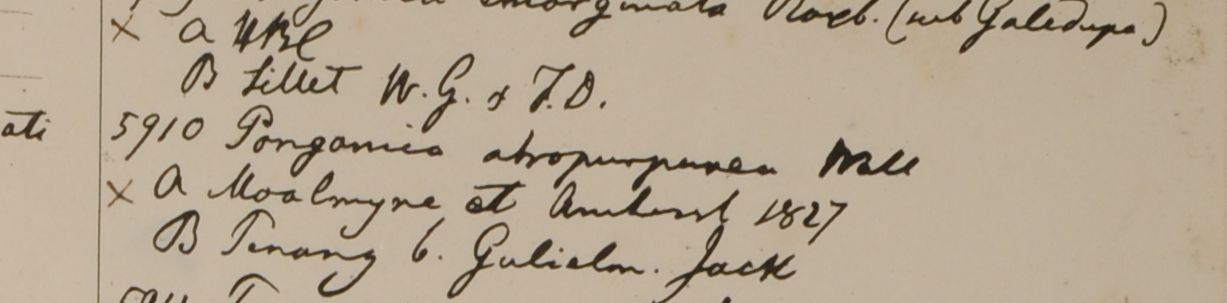 emarginata Roxb. (sub Galedupa)
× a HBC
B Sillet W.G. & F.D.
ati
5910 Pongamia atropurpurea Wall
× a Moalmyne et Amherst 1827
B Penang b. Gulielm. Jack